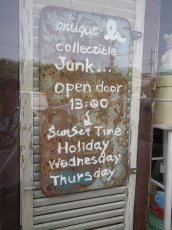 antique &
collectible
Junk...
open door
13:00
Sunset Time
Holiday
Wednesday
Thursday